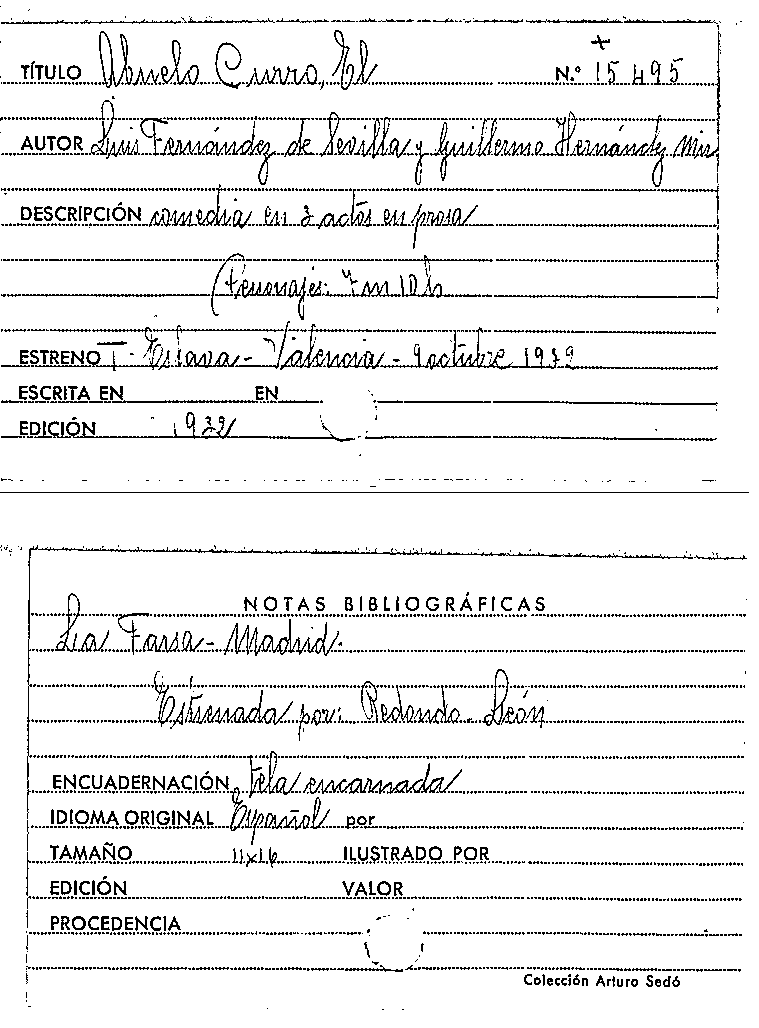 TÍTULO Abuelo Curro, El N.º 15495
AUTOR Luis Fernández de Sevilla y Guillermo Hernández Mir
DESCRIPCIÓN comedia en 3 actos en prosa
(Personajes: 7 m 10 h
ESTRENO T. Eslava - Valencia - 9 octubre 1932
ESCRITA EN EN
EDICIÓN 1932
NOTAS BIBLIOGRÁFICAS
La Farsa - Madrid.
Estrenada por: Redondo - León
ENCUADERNACIÓN tela encarnada
IDIOMA ORIGINAL Español por
TAMAÑO 11x16 ILUSTRADO POR
EDICIÓN VALOR
PROCEDENCIA
Colección Arturo Sedó